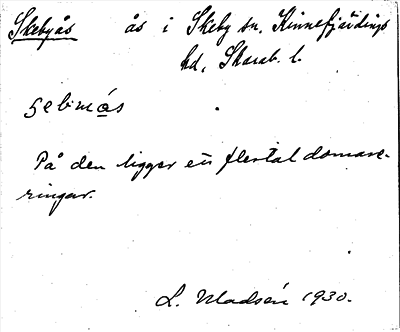 Skebyås ås i Skeby sn, Kinnefjärdings
hd, Skarab. l.
På den ligger en flertal domare-
ringar.
L. Madsén 1930.